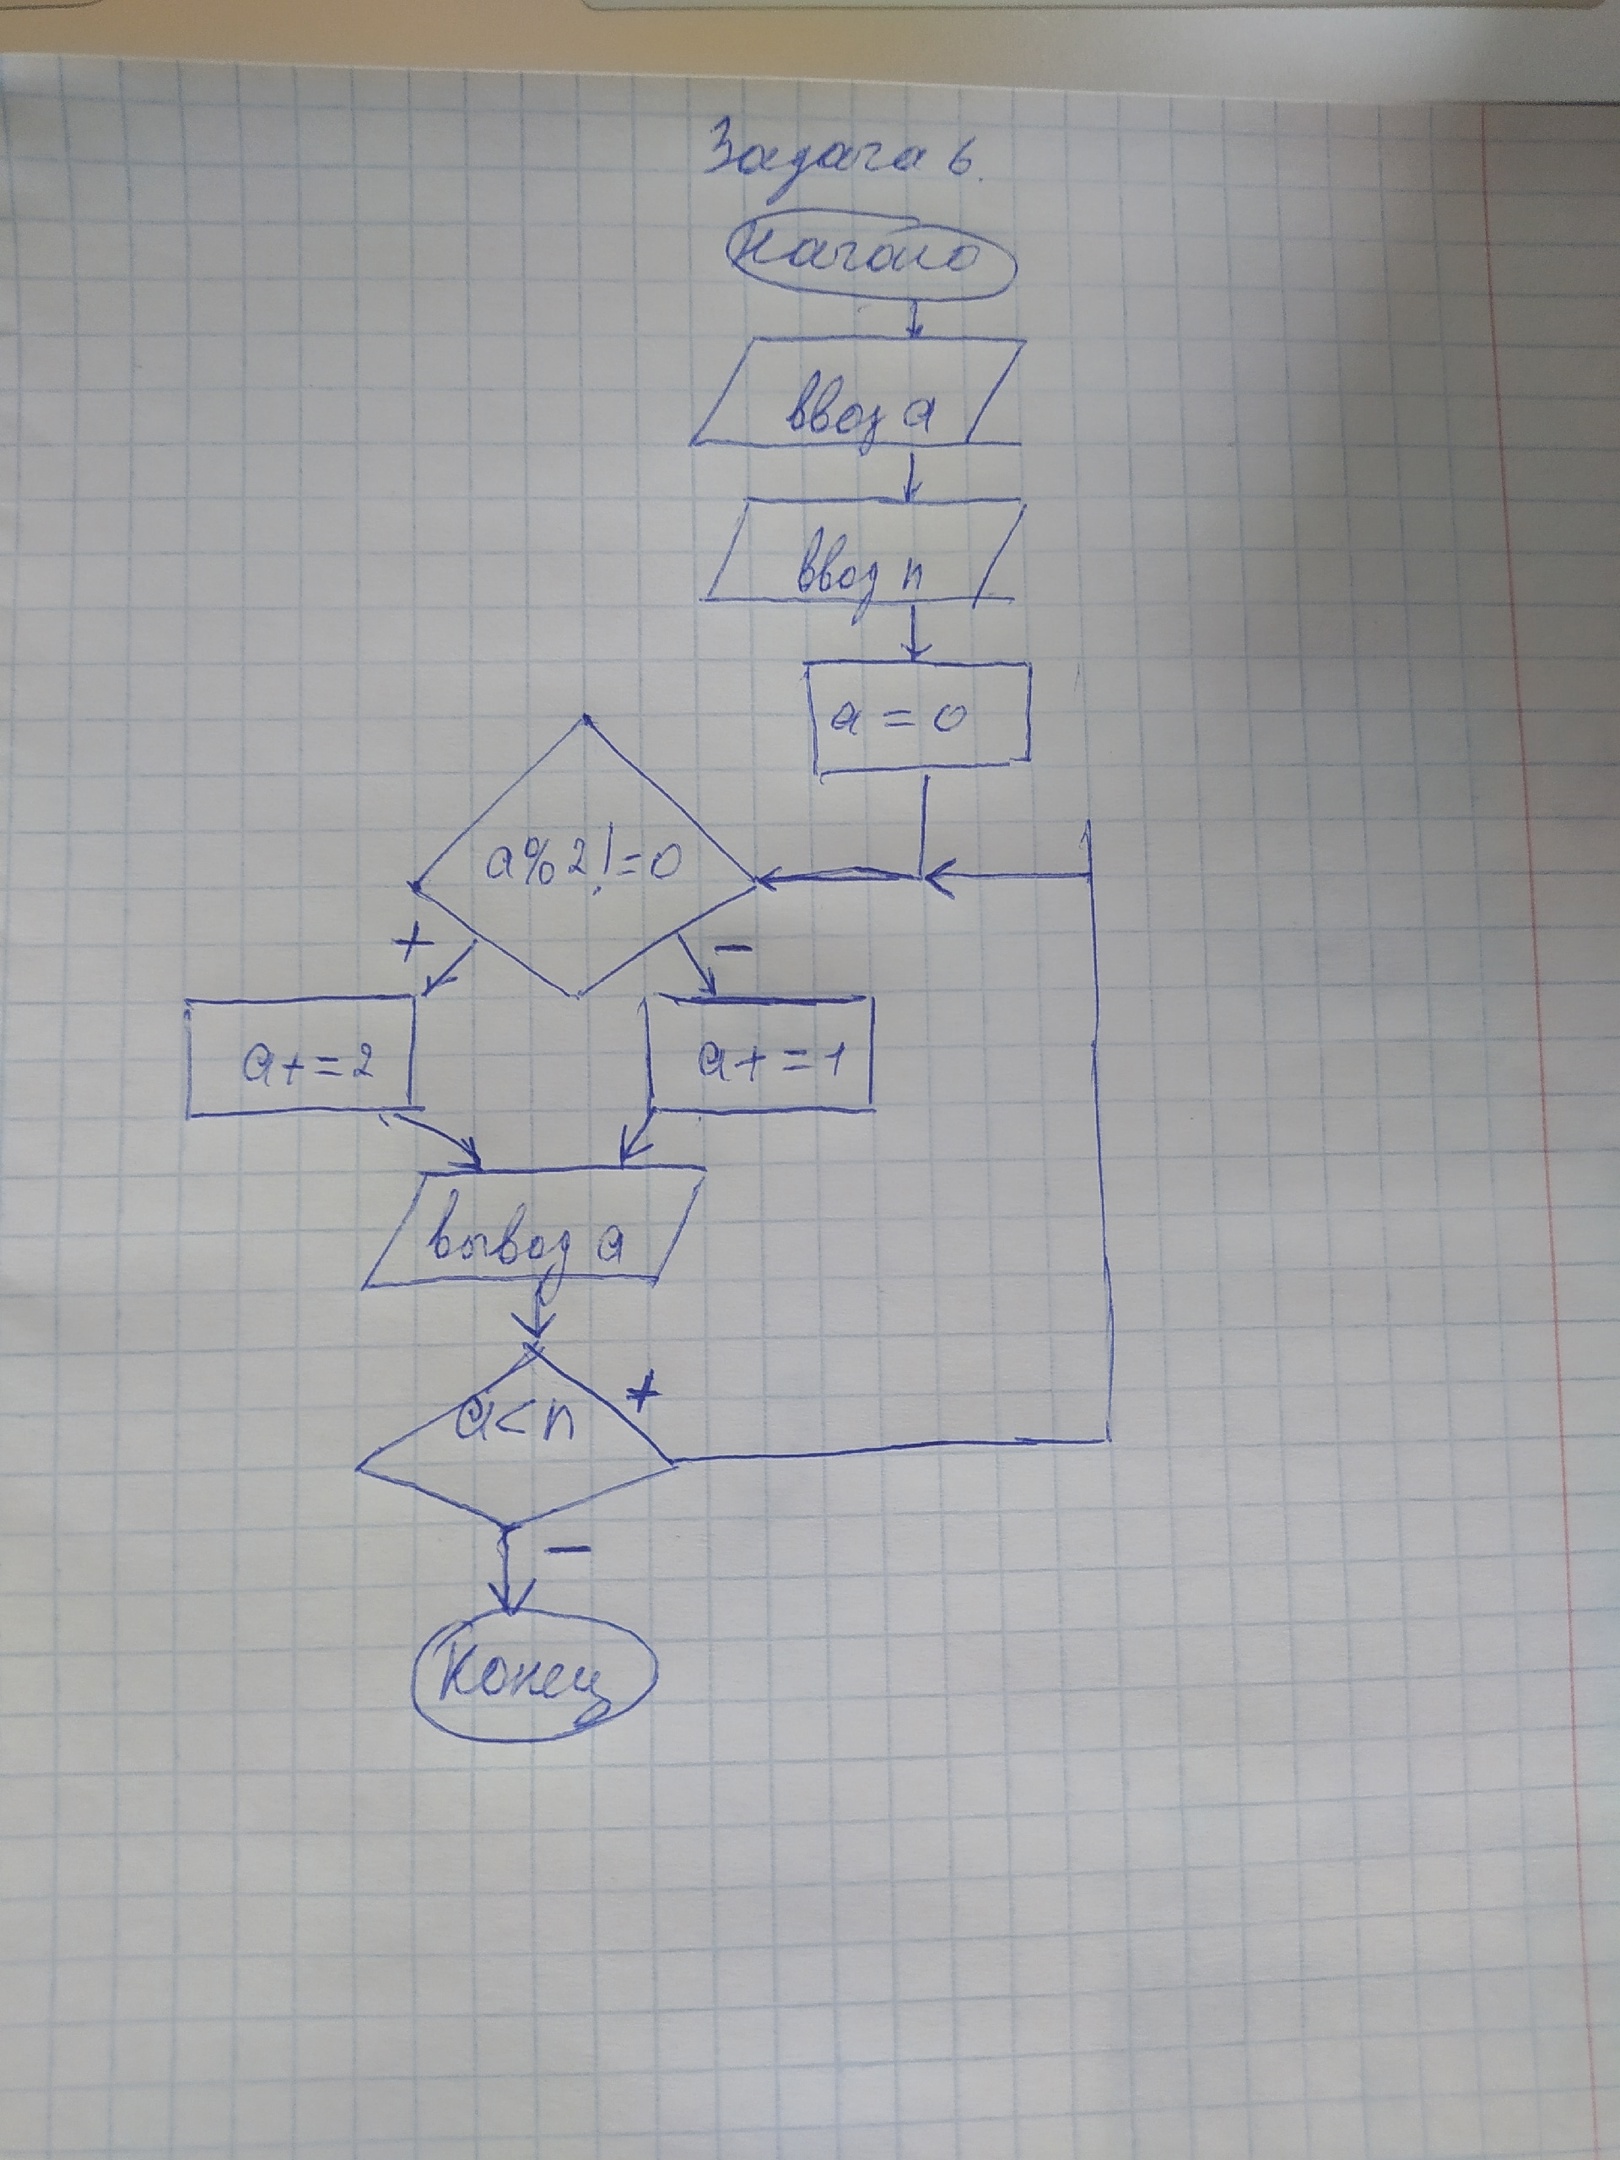 Задача 6.
Начало
ввод a
ввод n
a = 0
a%2!=0
+
−
a+=2
a+=1
вывод a
a<n
+
−
Конец